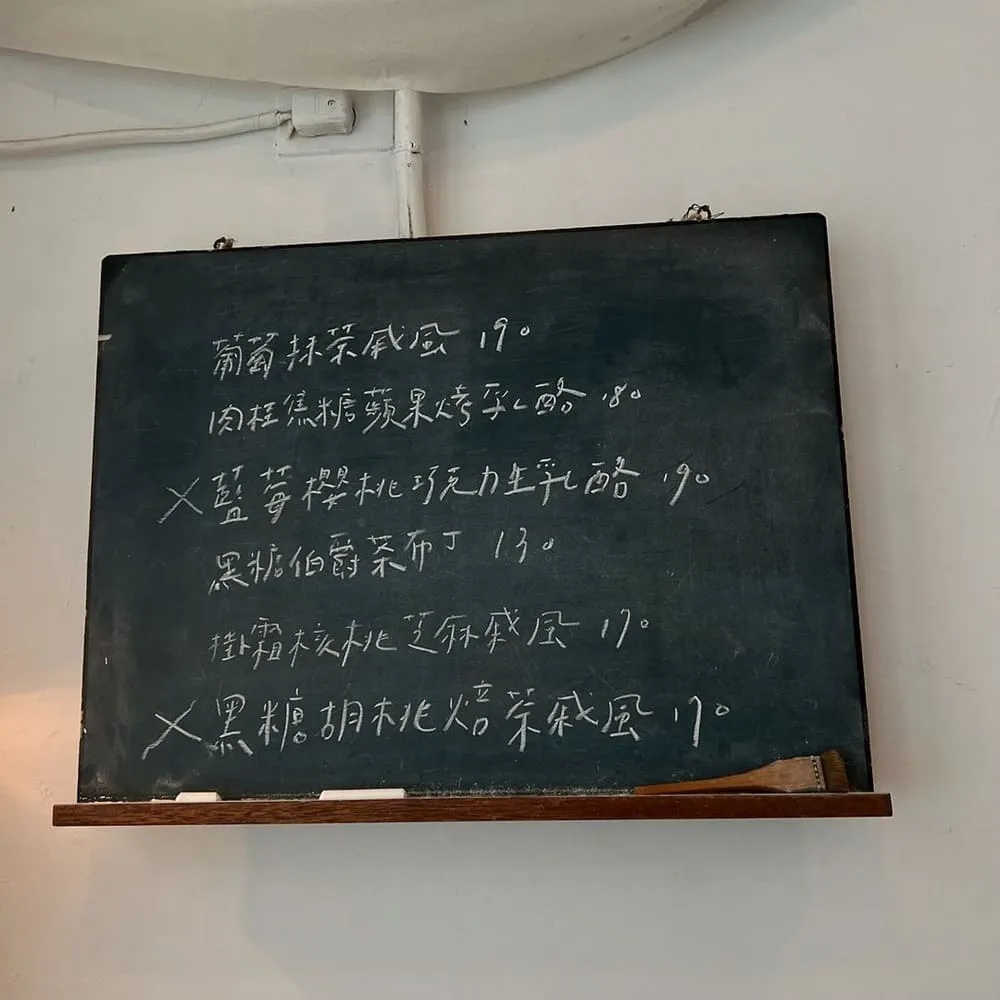 葡萄抹茶戚風 190
肉桂焦糖蘋果烤乳酪 180
X 藍莓櫻桃巧克力生乳酪 190
黑糖伯爵茶布丁 130
掛霜核桃芝麻戚風 170
X 黑糖胡桃焙茶戚風 170